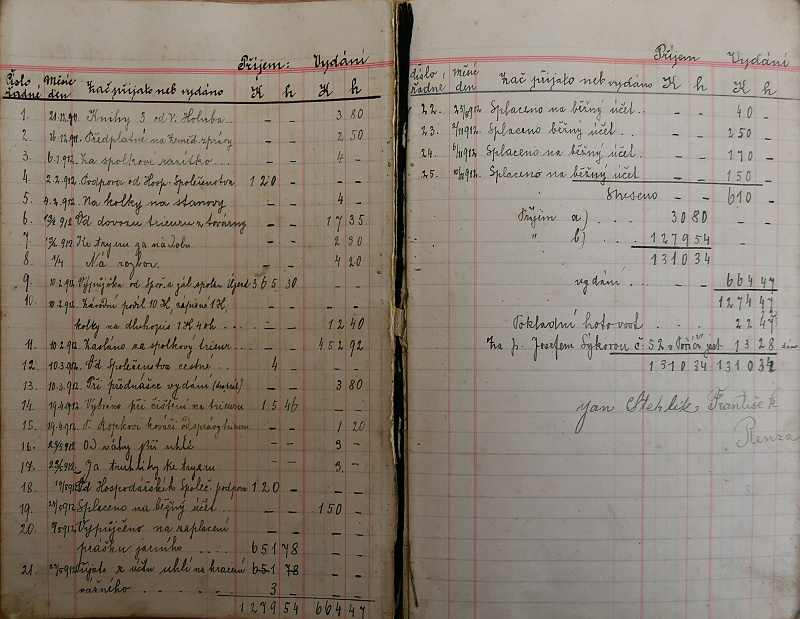 Příjem: Vydání
Číslo řadné Měsíc den Zač přijato neb vydáno K h K h
1. 21.12.911. Knihy 3 od V. Holuba.. – – 3 80
2. 26.12.911. Předplatné na Zeměd. zprávy – – 2 50
3. 6.1.912. Za spolkove razítko... – – 4 –
4. 2.2.912. Podpora od Hosp. Společenstva 120 – – –
5. 4.2.912. Na kolky na stanovy – – 4 –
6. 912 Od dovozu trieuru z továrny – – 17 35
7. 912 Ke tryru – – 2 90
8. 1/4 Na rozbor – – 4 20
9. 10.2.912. Výpůjčka od 365 30 – –
10. 10.2.912. Závodní podíl 10 K, zápisné 1 K,
kolky na dluhopis 1 K 40 h... – – 12 40
11. 10.2.912. Zasláno za spolkový trieur... – – 459 92
12. 10.3.912. Od Společenstva cestné... 4 – – –
13. 10.3.912. Při přednášce vydání – – 3 80
14. 19.4.912. Vybráno při čištění na trieuru 15 46 – –
15. 19.4.912. Ropkovi kováři od správy trieuru – – 1 20
16. 912 Od váhy při uhlí – – 9 –
17. 912. Za truhlíky ke tryru – – 9 –
18. 912 Od Hospodářských Společ. podpora 120 – – –
19. 912. Splaceno na běžný účet... – – 150 –
20. 912. Vypůjčeno na zaplacení
prášku jarního.... 651 78 – –
21. 912 Přijato z účtu uhlí na hrazení 651 78 – –
važného..... 3 – – –
1279 54 664 47
Příjem Vydání
Číslo řadné Měsíc den Zač přijato neb vydáno K h K h
22. 912. Splaceno na běžný účet.. – – 40 –
23. 2/11 912. Splaceno běžný účet... – – 250 –
24. 6/11 912. Splaceno na běžný účet. – – 170 –
25. 912. Splaceno na běžný účet – – 150 –
Sneseno – – 610 –
Příjem a) ... 30 80 – –
" b) ... 1279 54 – –
1310 34
vydání... 664 47
1274 47
Pokladní hotovost... 22 47
Za p. Josefem Sýkorou č. 52 v Poříčí jest 13 28
1310 34 1310 34
Jan Stehlík František
Renza